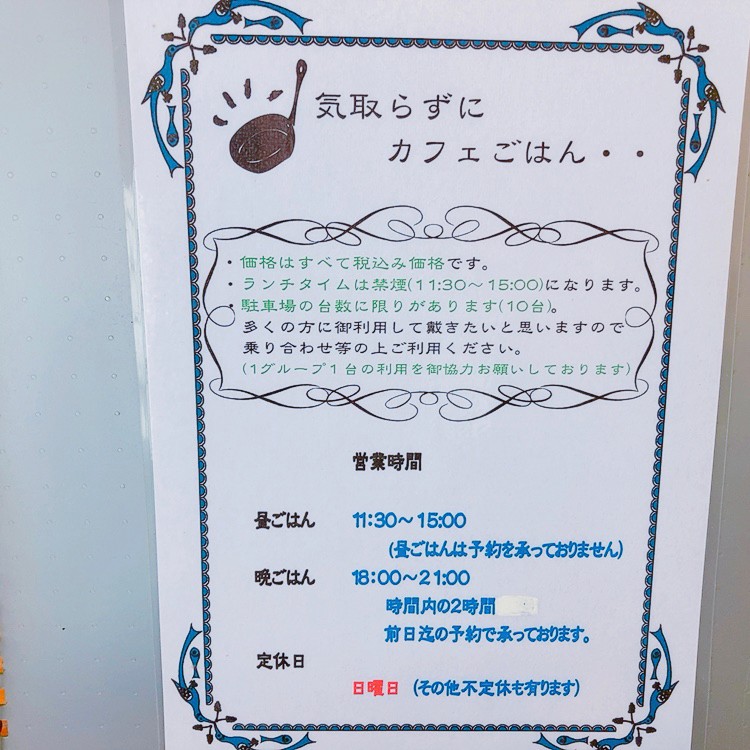 気取らずに
カフェごはん・・
・価格はすべて税込み価格です。
・ランチタイムは禁煙(11:30～15:00)になります。
・駐車場の台数に限りがあります(10台)。
多くの方に御利用して戴きたいと思いますので
乗り合わせ等の上ご利用ください。
(1グループ1台の利用を御協力お願いしております)
営業時間
昼ごはん 11:30～15:00
(昼ごはんは予約を承っておりません)
晩ごはん 18:00～21:00
時間内の2時間
前日迄の予約で承っております。
定休日
日曜日 (その他不定休も有ります)